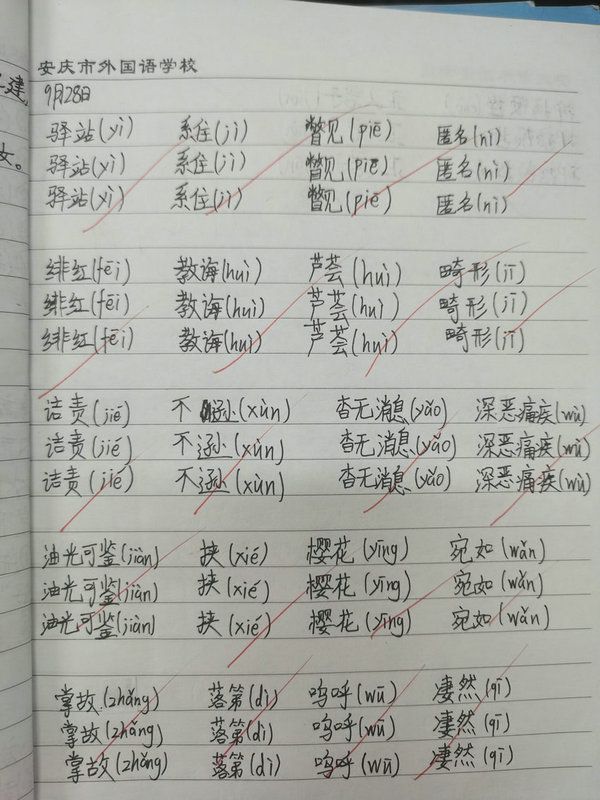 建
女。
安庆市外国语学校
9月28日
驿站(yì) 系住(jì) 瞥见(piē) 匿名(nì)
驿站(yì) 系住(jì) 瞥见(piē) 匿名(nì)
驿站(yì) 系住(jì) 瞥见(piē) 匿名(nì)
绯红(fēi) 教诲(huì) 芦荟(huì) 畸形(jī)
绯红(fēi) 教诲(huì) 芦荟(huì) 畸形(jī)
绯红(fēi) 教诲(huì) 芦荟(huì) 畸形(jī)
诘责(jié) 不逊(xùn) 杳无消息(yǎo) 深恶痛疾(wù)
诘责(jié) 不逊(xùn) 杳无消息(yǎo) 深恶痛疾(wù)
诘责(jié) 不逊(xùn) 杳无消息(yǎo) 深恶痛疾(wù)
油光可鉴(jiàn) 挟(xié) 樱花(yīng) 宛如(wǎn)
油光可鉴(jiàn) 挟(xié) 樱花(yīng) 宛如(wǎn)
油光可鉴(jiàn) 挟(xié) 樱花(yīng) 宛如(wǎn)
掌故(zhǎng) 落第(dì) 呜呼(wū) 凄然(qī)
掌故(zhǎng) 落第(dì) 呜呼(wū) 凄然(qī)
掌故(zhǎng) 落第(dì) 呜呼(wū) 凄然(qī)